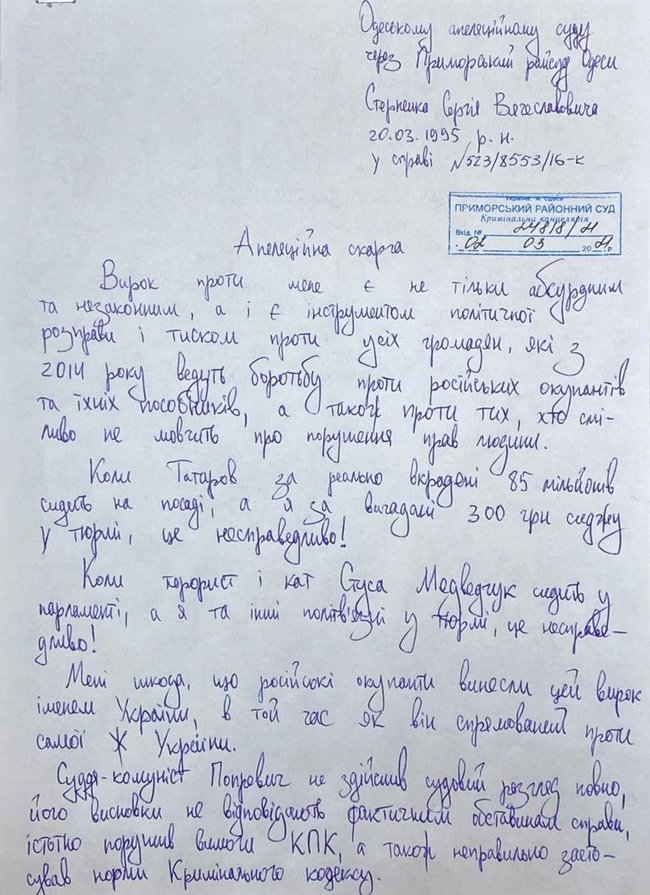 Одеському апеляційному суду
через Приморський райсуд Одеси
Стерненка Сергія Вячеславовича
20.03.1995 р.н.
у справі №523/8553/16-к
Україна м. Одеса
ПРИМОРСЬКИЙ РАЙОННИЙ СУД
Кримінальна канцелярія
Вхід. №
02 03 2021 р
Апеляційна скарга
Вирок проти мене є не тільки абсурдним
та незаконним, а і є інструментом політичної
розправи і тиском проти усіх громадян, які з
2014 року ведуть боротьбу проти російських окупантів
та їхніх пособників, а також проти тих, хто смі-
ливо не мовчить про порушення прав людини.
Коли Татаров за реально вкрадені 85 мільйонів
сидить на посаді, а я за вигадані 300 грн сиджу
у тюрмі, це несправедливо!
Коли терорист і кат Стуса Медведчук сидить у
парламенті, а я та інші політв'язні у тюрмі, це несправе-
дливо!
Мені шкода, що російські окупанти винесли цей вирок
іменем України, в той час як він спрямований проти
самої України.
Суддя-комуніст Попревич не здійснив судовий розгляд повно,
його висновки не відповідають фактичним обставинам справи,
істотно порушив вимоги КПК, а також неправильно засто-
сував норми Кримінального кодексу.